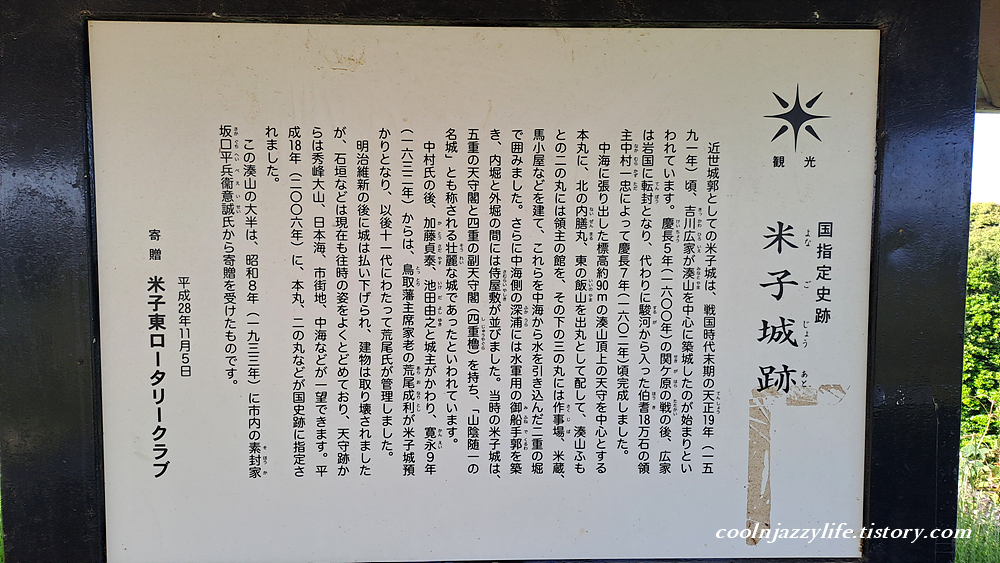 観光
国指定史跡
米子城跡
よなごじょうあと
近世城郭としての米子城は、戦国時代末期の天正19年(一五
九一年)頃、吉川広家が湊山を中心に築城したのが始まりとい
われています。慶長5年(一六〇〇年)の関ケ原の戦の後、広家
は岩国に転封となり、代わりに駿河から入った伯耆18万石の領
主中村一忠によって慶長7年(一六〇二年)頃完成しました。
中海に張り出した標高約90mの湊山頂上の天守を中心とする
本丸に、北の内膳丸、東の飯山を出丸として配して、湊山ふも
との二の丸には領主の館を、その下の三の丸には作事場、米蔵、
馬小屋などを建て、これらを中海から水を引き込んだ二重の堀
で囲みました。さらに中海側の深浦には水軍用の御船手郭を築
き、内堀と外堀の間には侍屋敷が並びました。当時の米子城は、
五重の天守閣と四重の副天守閣(四重櫓)を持ち、「山陰随一の
名城」とも称される壮麗な城であったといわれています。
中村氏の後、加藤貞泰、池田由之と城主がかわり、寛永9年
(一六三二年)からは、鳥取藩主席家老の荒尾成利が米子城預
かりとなり、以後十一代にわたって荒尾氏が管理しました。
明治維新の後に城は払い下げられ、建物は取り壊されました
が、石垣などは現在も往時の姿をよくとどめており、天守跡か
らは秀峰大山、日本海、市街地、中海などが一望できます。平
成18年(二〇〇六年)に、本丸、二の丸などが国史跡に指定さ
れました。
この湊山の大半は、昭和8年(一九三三年)に市内の素封家
坂口平兵衛意誠氏から寄贈を受けたものです。
平成28年11月5日
寄贈 米子東ロータリークラブ
coolnjazzylife.tistory.com